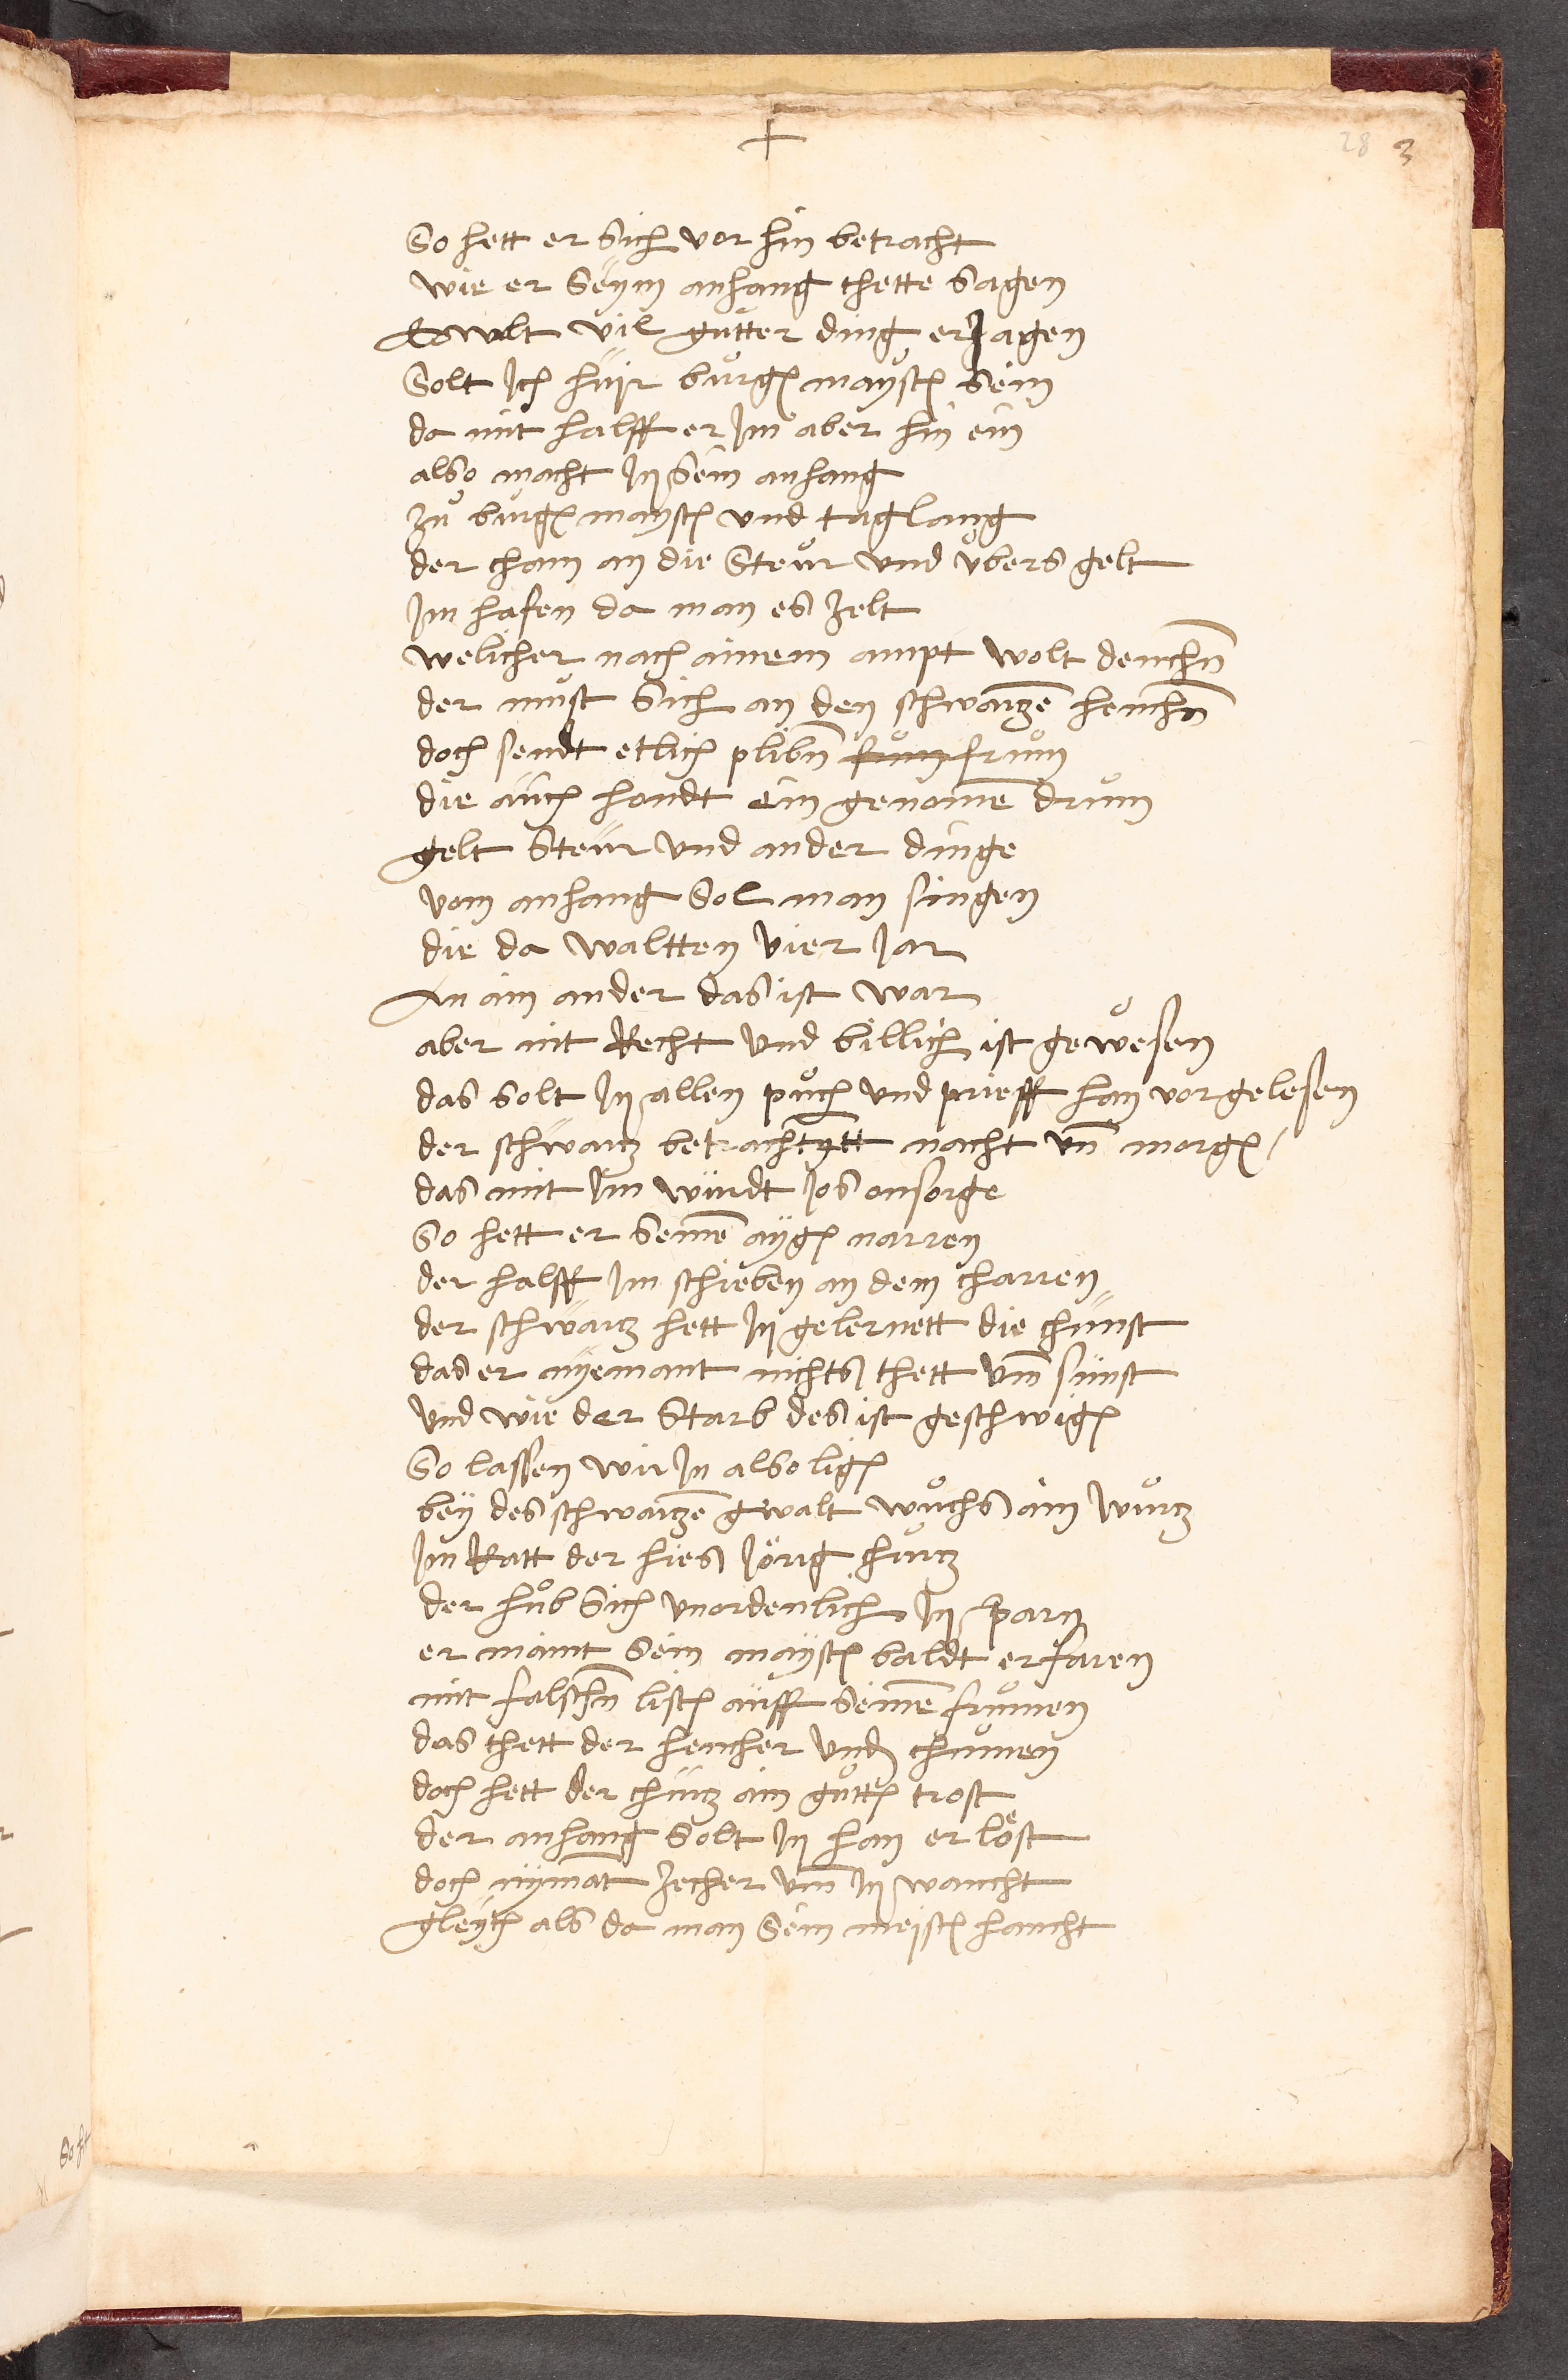 28 3
So hett er Sich vor hin betracht
wie er Seym anhang thette Sagen
Er wolt vil gutter ding erJagen
Solt Jch hüjr burgermayster Sein
da mit halff er Jm aber hin ein
also macht Jn Sein anhang
Zů burgermayster vnd taglang
der cham an die Steůr vnd vbers gelt
Jm hafen da man es Zelt
welicher nach ainem ampt wolt denchn̄
der můst Sich an den schwarzē henchn̄
doch sendt etlich plibn̄ frum
die aüch hondt ein genomē drum
gelt Steür vnd ander dinge
vom anhang Sol man singen
die da waltten vier Jar
An ain ander das ist war
aber nit Recht vnd billich ist gewesen
das solt Jn allen půch vnd prieff han vorgelesen
der schwarz betrachtytt nacht vn̄ morgen
das mit Jm würdt Jos onsorge
So hett er Seinē aygen narren
der halff Jm schieben an dem charren
der schwarz hett Jn gelernett die chunst
das er nyemant nichts thett vm̄ sünst
Vnd wie der Starb des ist geschwigen
So lassen wir Jn also ligen
bey des schwarzē gwalt wůchs ain wurz
Jm Ratt der hies Jörig churz
der hůb Sich vnordenlich Jn parn
er maint Sein mayster baldt erfaren
mit falschn̄ listen aüff Seinē frumen
das thett der hencher vnder chumen
doch hett der churz ain gůtten trost
der anhang Solt Jn han er löst
doch nymāt Zecher vm̄ Jn wancht
gleych als da man Sein meister hancht